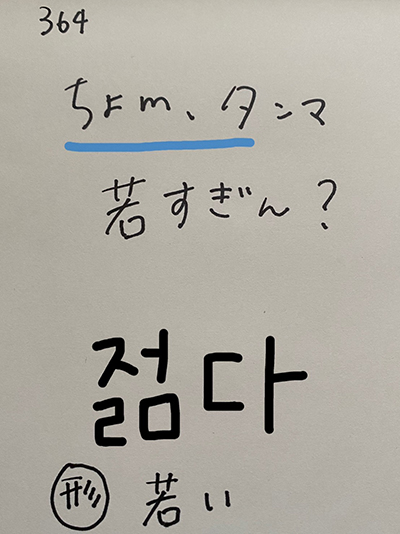 364
ちょm、タンマ
若すぎん?
젊다
形 若い